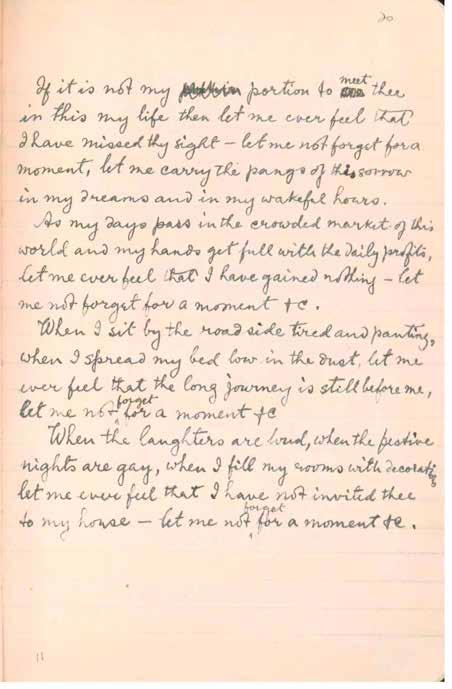 20
If it is not my portion to meet thee
in this my life then let me ever feel that
I have missed thy sight – let me not forget for a
moment, let me carry the pangs of this sorrow
in my dreams and in my wakeful hours.
As my days pass in the crowded market of this
world and my hands get full with the daily profits,
let me ever feel that I have gained nothing – let
me not forget for a moment &c.
When I sit by the road side tired and panting,
when I spread my bed low in the dust, let me
ever feel that the long journey is still before me,
let me not forget for a moment &c
When the laughters are loud, when the festive
nights are gay, when I fill my rooms with decorations
let me ever feel that I have not invited thee
to my house – let me not forget for a moment &c.
11